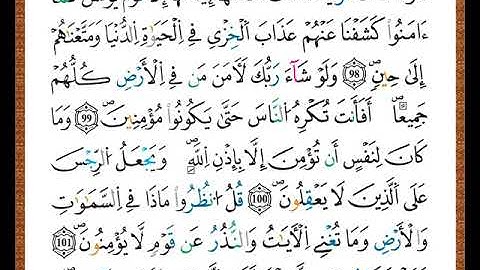 ءَامَنُواْ كَشَفْنَا عَنْهُمْ عَذَابَ اَلْخِزْيِ فِي اِلْحَيَوٰةِ اِلدُّنْيَا وَمَتَّعْنَٰهُمْ
إِلَىٰ حِينٍۖ ٩٨ وَلَوْ شَآءَ رَبُّكَ لَأٓمَنَ مَن فِي اِلْأَرْضِ كُلُّهُمْ
جَمِيعاًۖ أَفَأَنتَ تُكْرِهُ اُلنَّاسَ حَتَّىٰ يَكُونُواْ مُؤْمِنِينَۖ ٩٩ وَمَا
كَانَ لِنَفْسٍ أَن تُؤْمِنَ إِلَّا بِإِذْنِ اِللَّهِۖ وَيَجْعَلُ اُلرِّجْسَ
عَلَى اَلَّذِينَ لَا يَعْقِلُونَۖ ١٠٠ قُلُ اُنظُرُواْ مَاذَا فِي اِلسَّمَٰوَٰتِ
وَالْأَرْضِ وَمَا تُغْنِي اِلْأٓيَٰتُ وَالنُّذُرُ عَن قَوْمٍ لَّا يُؤْمِنُونَۖ ١٠١